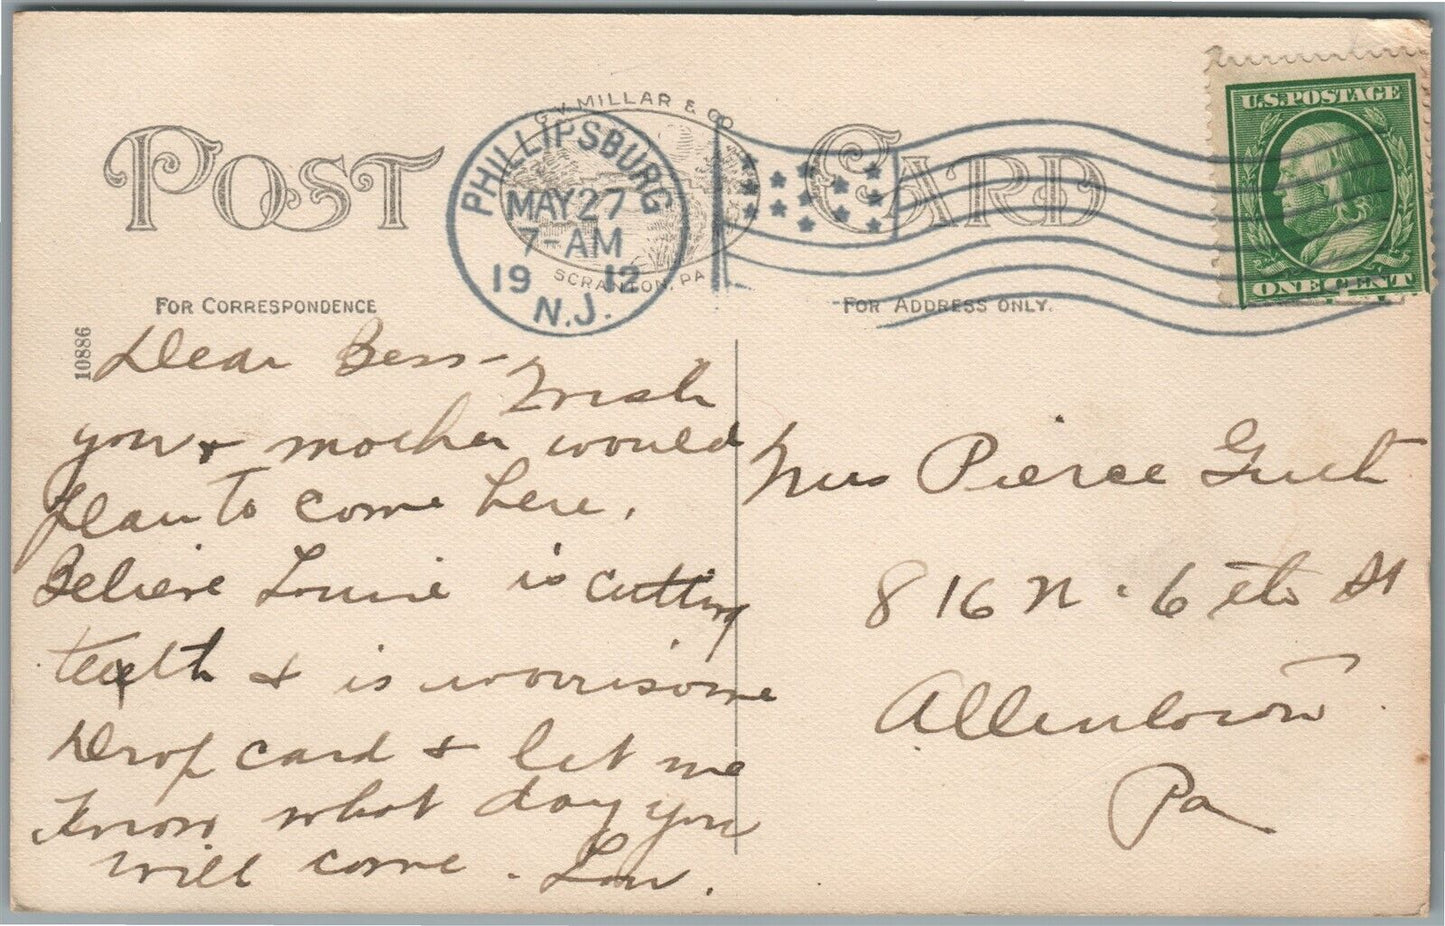 POST CARD
C. V. MILLAR & CO
SCRANTON, PA
PHILLIPSBURG
MAY 27
7-AM
1912
N.J.
U.S. POSTAGE
ONE CENT
FOR CORRESPONDENCE
FOR ADDRESS ONLY.
10886
Dear Bess-
Wish
you & mother would
plan to come here.
Believe Louise is cutting
teeth & is worrisome
Drop card & let me
know what day you
will come. Lou.
Mrs Pierce
816 N. 6th St
Allentown
Pa